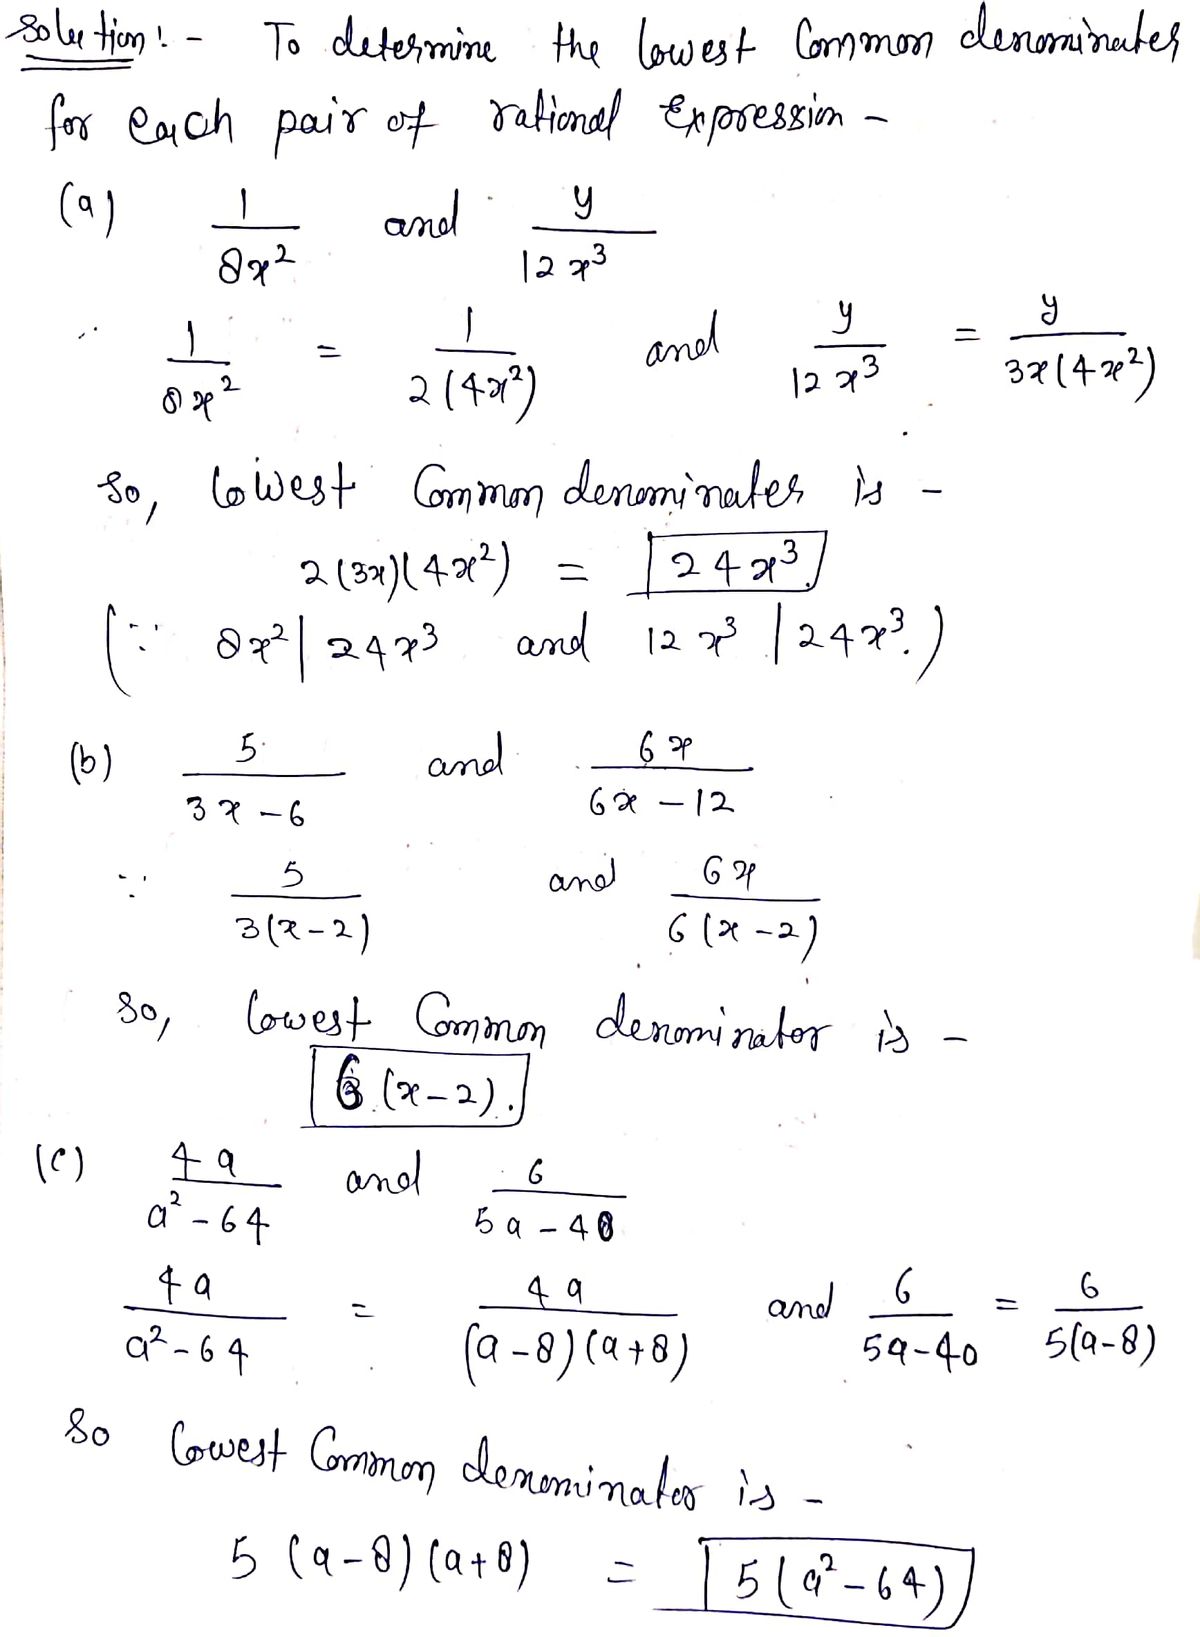 Solution :- To determine the lowest Common denominates
for each pair of rational Expression -
(a) 1/8x² and y/12x³
∴ 1/8x² = 1/2(4x²) and y/12x³ = y/3x(4x²)
So, lowest Common denominates is -
2(3x)(4x²) = 24x³.
(∵ 8x² | 24x³ and 12x³ | 24x³.)
(b) 5/3x-6 and 6x/6x-12
∵ 5/3(x-2) and 6x/6(x-2)
So, lowest Common denominator is -
6(x-2).
(c) 4a/a²-64 and 6/5a-40
4a/a²-64 = 4a/(a-8)(a+8) and 6/5a-40 = 6/5(a-8)
So lowest Common denominator is -
5(a-8)(a+8) = 5(a²-64)